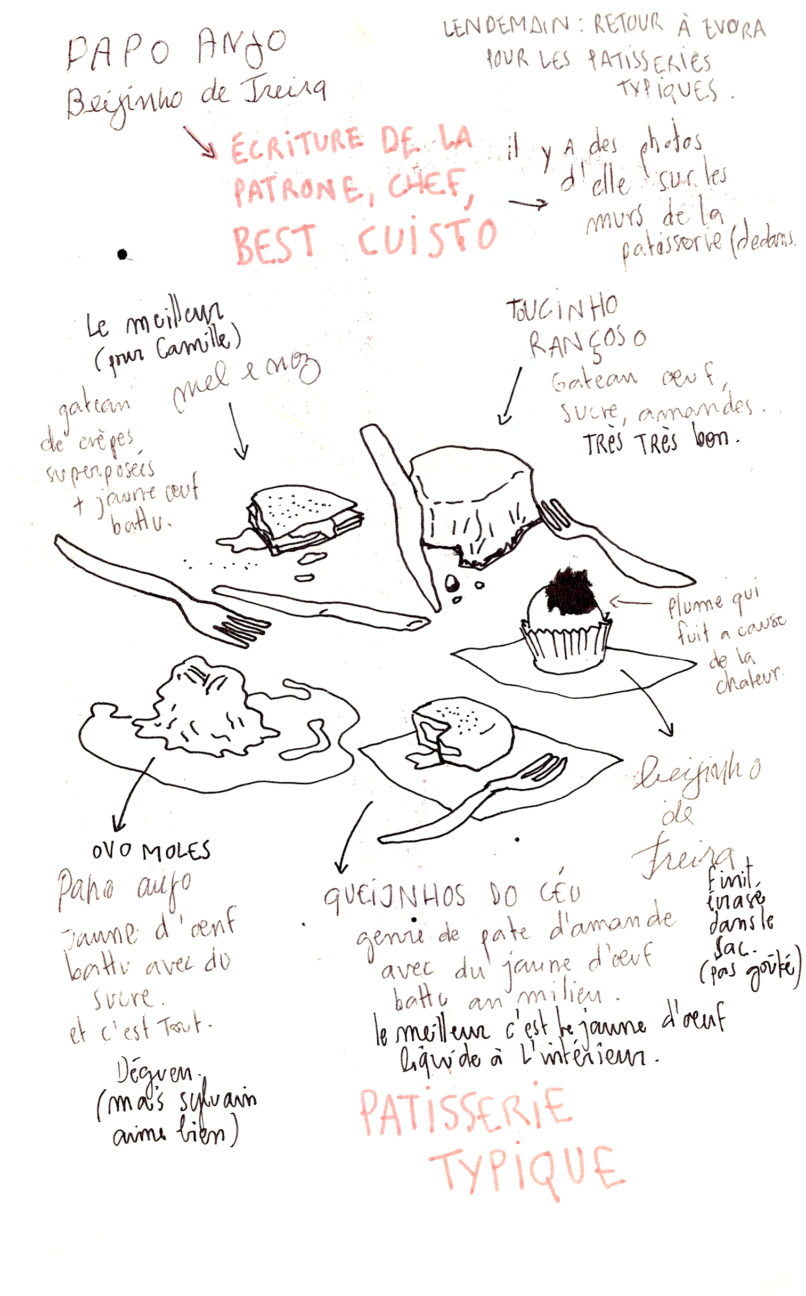 PAPO ANJO
Beijinho de Freira
LENDEMAIN : RETOUR À EVORA
POUR LES PATISSERIES
TYPIQUES .
ÉCRITURE DE LA
PATRONE, CHEF,
BEST CUISTO
il y A des photos
d'elle sur les
murs de la
patisserie (dedans.
Le meilleur
(pour Camille)
mel e noz
gateau
de crêpes
superposées
+ jaune œuf
battu.
TOUCINHO
RANÇOSO
Gateau œuf,
sucre, amandes..
TRÈS TRÈS bon.
plume qui
fuit a cause
de la
chaleur.
beijinho
de
Freira
finit
écrasé
dans le
sac.
(pas goûté)
OVO MOLES
Papo anjo
jaune d'œuf
battu avec du
sucre.
et c'est Tout.
Dégueu.
(mais sylvain
aime bien)
QUEIJNHOS DO CÉU
genre de pate d'amande
avec du jaune d'œuf
battu au milieu.
le meilleur c'est le jaune d'œuf
liquide à L'intérieur.
PATISSERIE
TYPIQUE